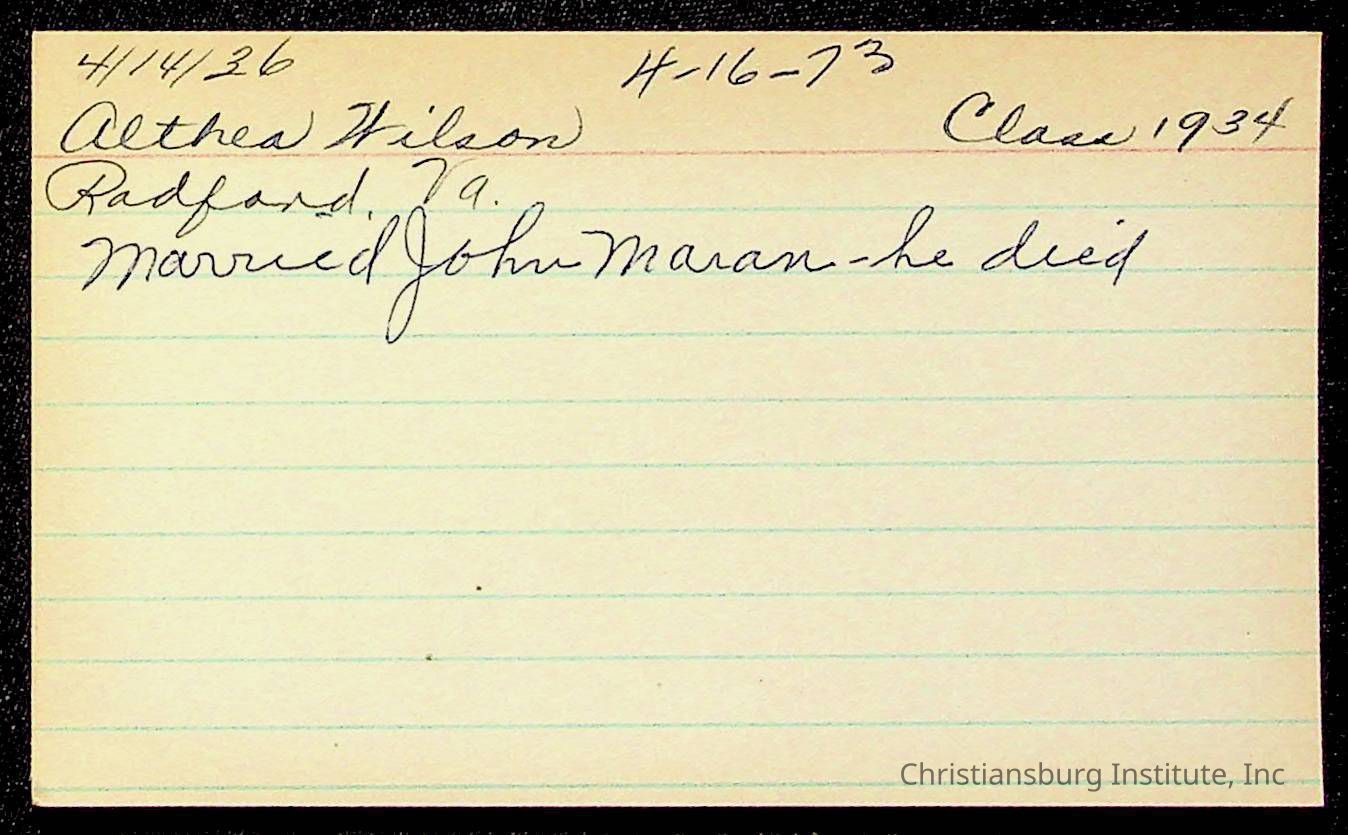 4/14/36 4-16-73
Althea Wilson Class 1934
Radford, Va.
Married John Maran - he died
Christiansburg Institute, Inc